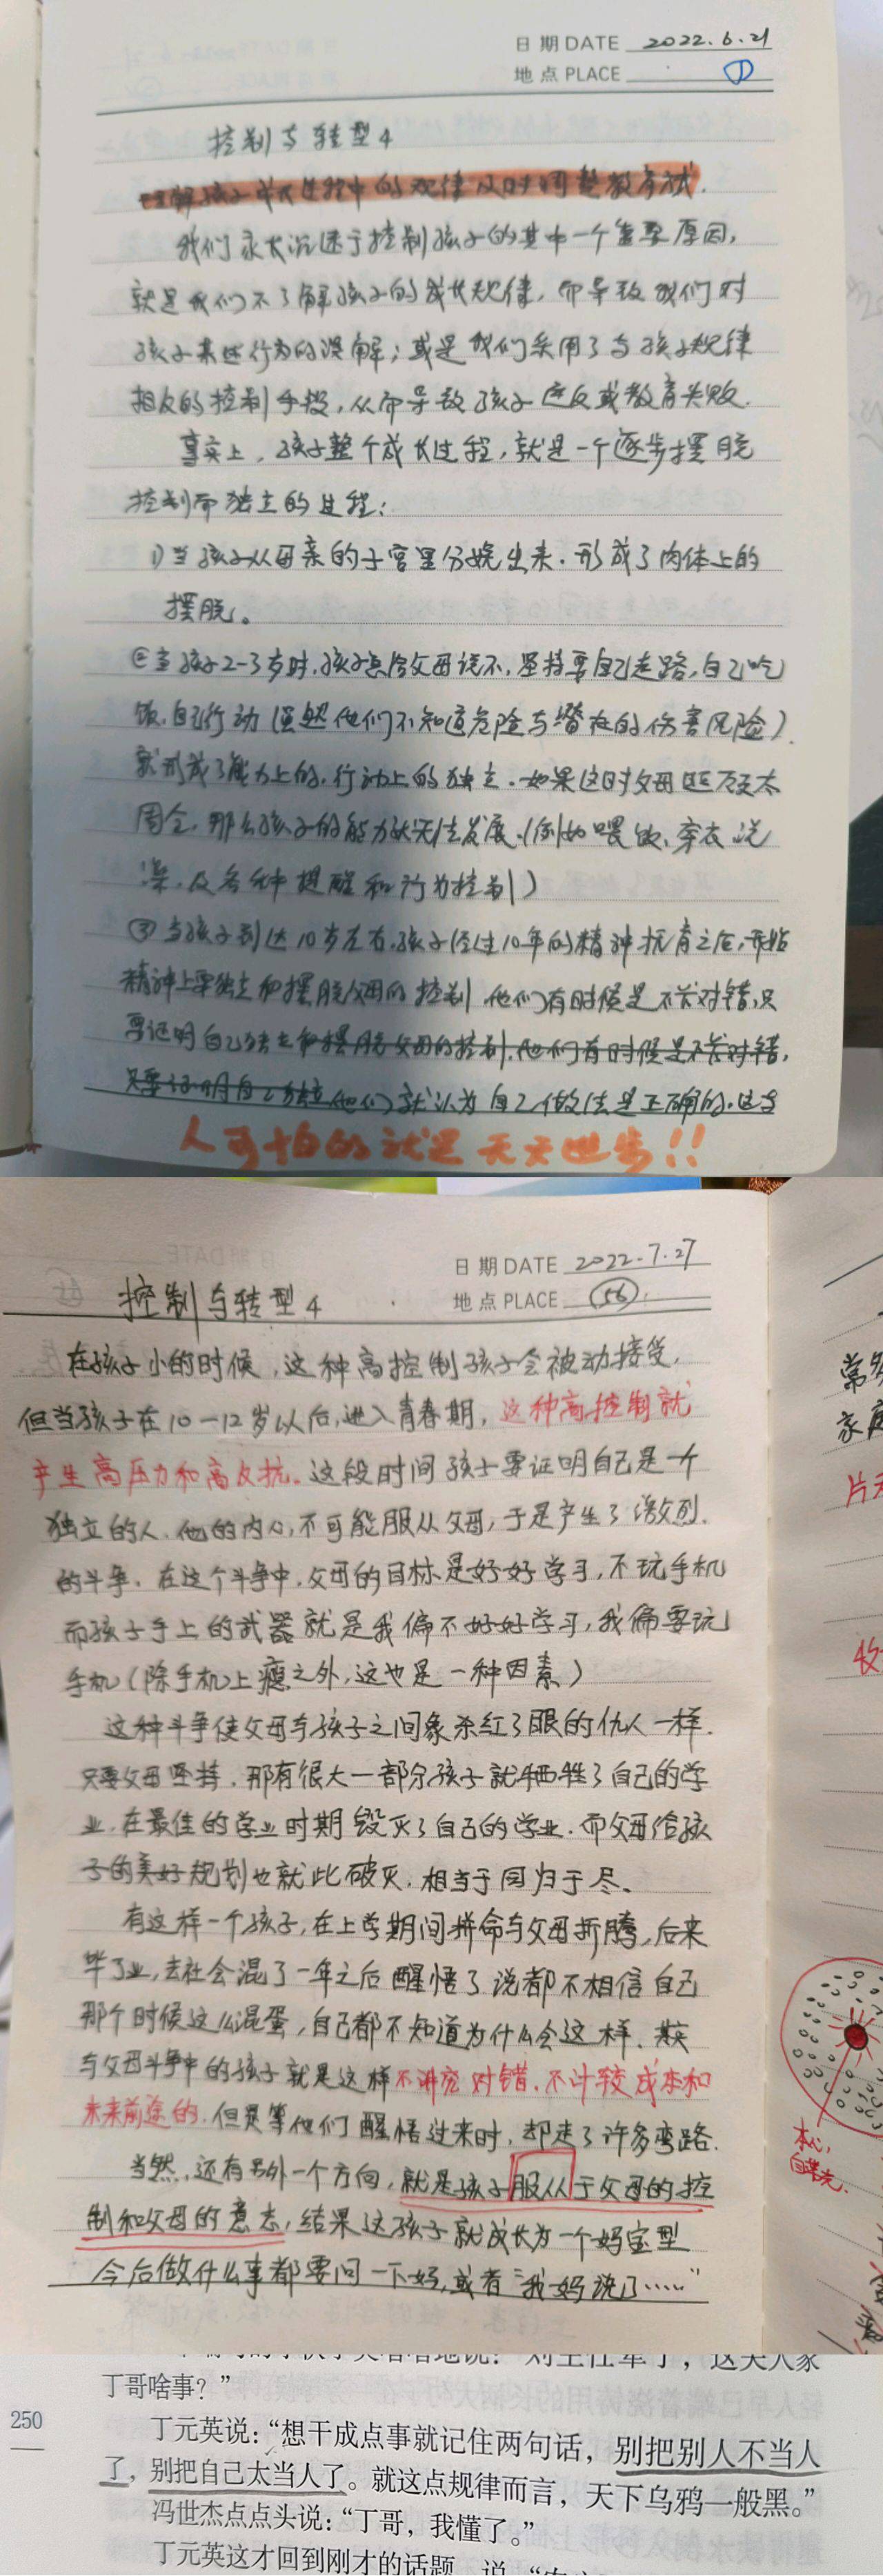 日期 DATE 2022.6.21
地点 PLACE ①
控制与转型4
理解孩子成长过程中的规律及时调整教育方式.
我们家长沉迷于控制孩子的其中一个重要原因,
就是我们不了解孩子的成长规律,而导致我们对
孩子某些行为的误解;或是我们采用了与孩子规律
相反的控制手段,从而导致孩子逆反或教育失败.
事实上,孩子整个成长过程,就是一个逐步摆脱
控制而独立的过程:
1)当孩子从母亲的子宫里分娩出来.形成了肉体上的
摆脱。
②当孩子2-3岁时.孩子总给父母说不,坚持要自己走路,自己吃
饭.自己行动(虽然他们不知道危险与潜在的伤害风险).
就形成了能力上的.行动上的独立.如果这时父母照顾太
周全,那么孩子的能力就无法发展.(例如喂饭、穿衣 洗
澡.及各种提醒和行为控制)
③当孩子到达10岁左右.孩子经过10年的精神抚育之后,开始
精神上要独立和摆脱父母的控制 他们有时候是不关对错,只
要证明自己独立和摆脱父母的控制.他们有时候是不关对错,
只要证明自己独立他们就认为自己做法是正确的.这当
人可怕的就是天天进步!!
日期 DATE 2022.7.27
控制与转型4
地点 PLACE 56
在孩子小的时候,这种高控制孩子会被动接受,
但当孩子在10一12岁以后,进入青春期,这种高控制就
产生高压力和高反抗。这段时间孩子要证明自己是一个
独立的人.他的内心,不可能服从父母,于是产生了激烈.
的斗争.在这个斗争中,父母的目标是好好学习,不玩手机
而孩子手上的武器就是我偏不好好学习,我偏要玩
手机(除手机上瘾之外,这也是一种因素)
这种斗争使父母与孩子之间象杀红了眼的仇人一样.
只要父母坚持,那有很大一部分孩子就牺牲了自己的学
业.在最佳的学业时期毁灭了自己的学业.而父母给孩
子的美好规划也就此破灭.相当于同归于尽。
有这样一个孩子,在上学期间拼命与父母折腾,后来
毕了业,去社会混了一年之后醒悟了 说都不相信自己
那个时候这么混蛋,自己都不知道为什么会这样.其实
与父母斗争中的孩子就是这样不讲究对错.不计较成本和
未来前途的.但是等他们醒悟过来时,却走了许多弯路.
当然,还有另外一个方向,就是孩子服从于父母的控
制和父母的意志,结果这孩子就成长为一个妈宝型
今后做什么事都要问一下妈,或者“我妈说了……”
常
家庭
片
收
本心,
自
丁哥啥事?”
250
丁元英说:“想干成点事就记住两句话,别把别人不当人
了,别把自己太当人了。就这点规律而言,天下乌鸦一般黑。”
冯世杰点点头说:“丁哥,我懂了。”
丁元英这才回到刚才的话题,说